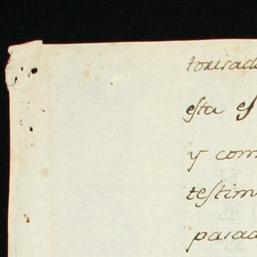 torisad
esta es
y com
testim
parad